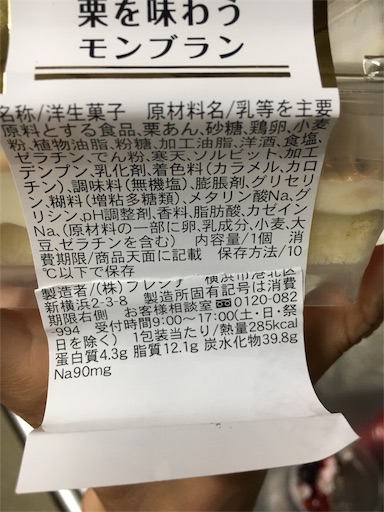 栗を味わう
モンブラン
名称/洋生菓子　原材料名/乳等を主要
原料とする食品、栗あん、砂糖、鶏卵、小麦
粉、植物油脂、粉糖、加工油脂、洋酒、食塩、
ゼラチン、でん粉、寒天、ソルビット、加工
デンプン、乳化剤、着色料(カラメル、カロ
チン)、調味料(無機塩)、膨脹剤、グリセリ
ン、糊料(増粘多糖類)、メタリン酸Na、グ
リシン、pH調整剤、香料、脂肪酸、カゼイン
Na、(原料の一部に卵、乳成分、小麦、大
豆、ゼラチンを含む)　内容量/1個　消
費期限/商品天面に記載　保存方法/10
℃以下で保存
製造者/(株)プレシア　横浜市港北区
新横浜2-3-8　製造所固有記号は消費
期限右側　お客様相談室 0120-082
-994　受付時間9:00～17:00(土・日・祭
日を除く)　1包装当たり/熱量285kcal
蛋白質4.3g 脂質12.1g 炭水化物39.8g
Na90mg